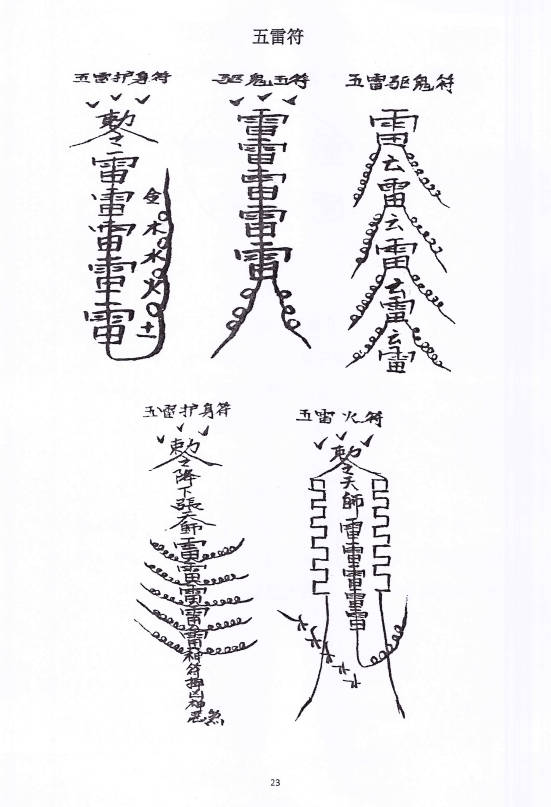 五雷符
五雷护身符
勅令雷雷雷雷雷
金木水火土
驱鬼五符
雷雷雷雷雷
五雷驱鬼符
雷云雷云雷云雷云雷
五雷护身符
勅令降下張天師雷雷雷雷雷神符押凶神恶煞
五雷火符
勅令天師雷雷雷雷雷
23